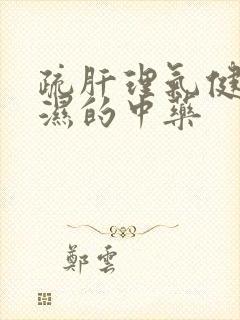 疏肝理气健
濕的中药
鄭雲